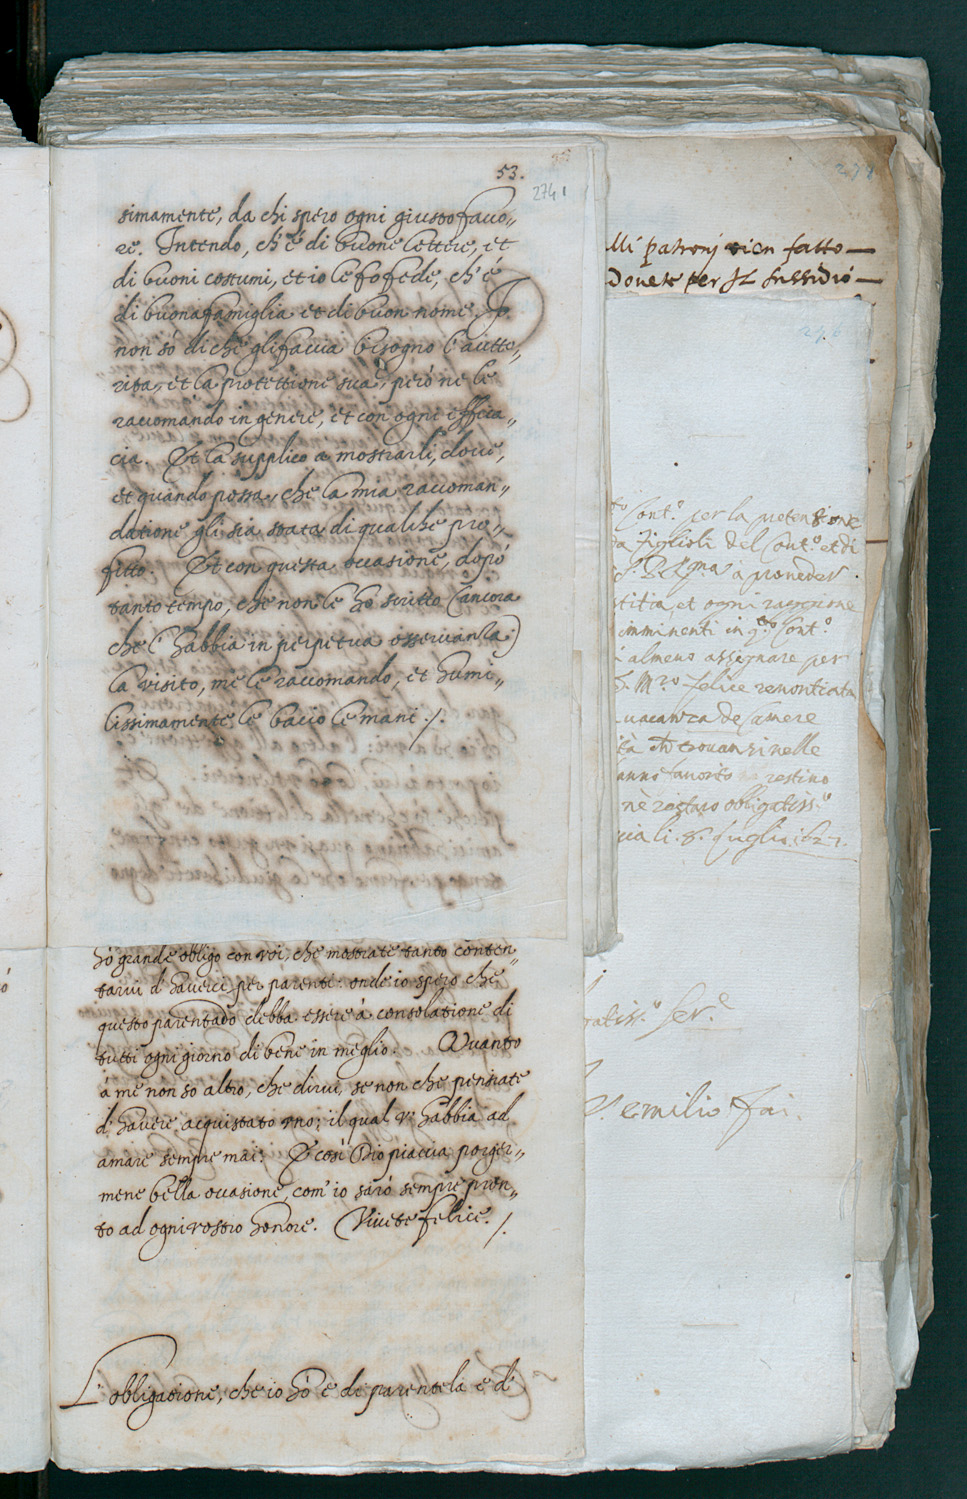 53.
274
simamente, da chi spero ogni giusto favo„
re. Intendo, ch'è di buone lettere, et
di buoni costumi, et io le fo fede, ch'è
di buona famiglia et di buon nome. Io
non sò di che gli faccia bisogno l'autto„
rità, et la protettione sua, però ne le
raccomando in genere, et con ogni effica„
cia. Et la supplico a mostrarli, dove,
et quando possa, che la mia raccoman„
datione gli sia stata di qualche pro„
fitto. Et con questa occasione, dopò
tanto tempo, che non le ho scritto (ancora
che l'habbia in perpetua osservanza)
la visito, me le raccomando, et humi„
lissimamente le bacio le mani ./.
hò grande obligo con voi, che mostrate tanto conten„
tarvi d'haverci per parenti: onde io spero che
questo parentado debba essere à consolatione di
tutti ogni giorno di bene in meglio. Quanto
à me non so altro, che dirvi, se non che pensiate
d'havere acquistato uno; il qual v'habbia ad
amare sempre mai. Et così Dio piaccia porger„
mene bella occasione, com'io sarò sempre pron„
to ad ogni vostro honore. Vivete felice. /.
L'obligatione, che io hò e di parentela e d'
278
lli patroni vien fatto
Dovete per il sussidio
276
Cont.º per la pretensione
figlioli del Cont.º et di
à proveder
et ogni raggione
imminenti in q.to Cont.º
almeno assegnare per
M.ro felice renontiata
vacanza de Camere
trovansi nelle
favorito restino
nè restarò obligatiss.º
li 8. luglio
ser.e
emilio fai